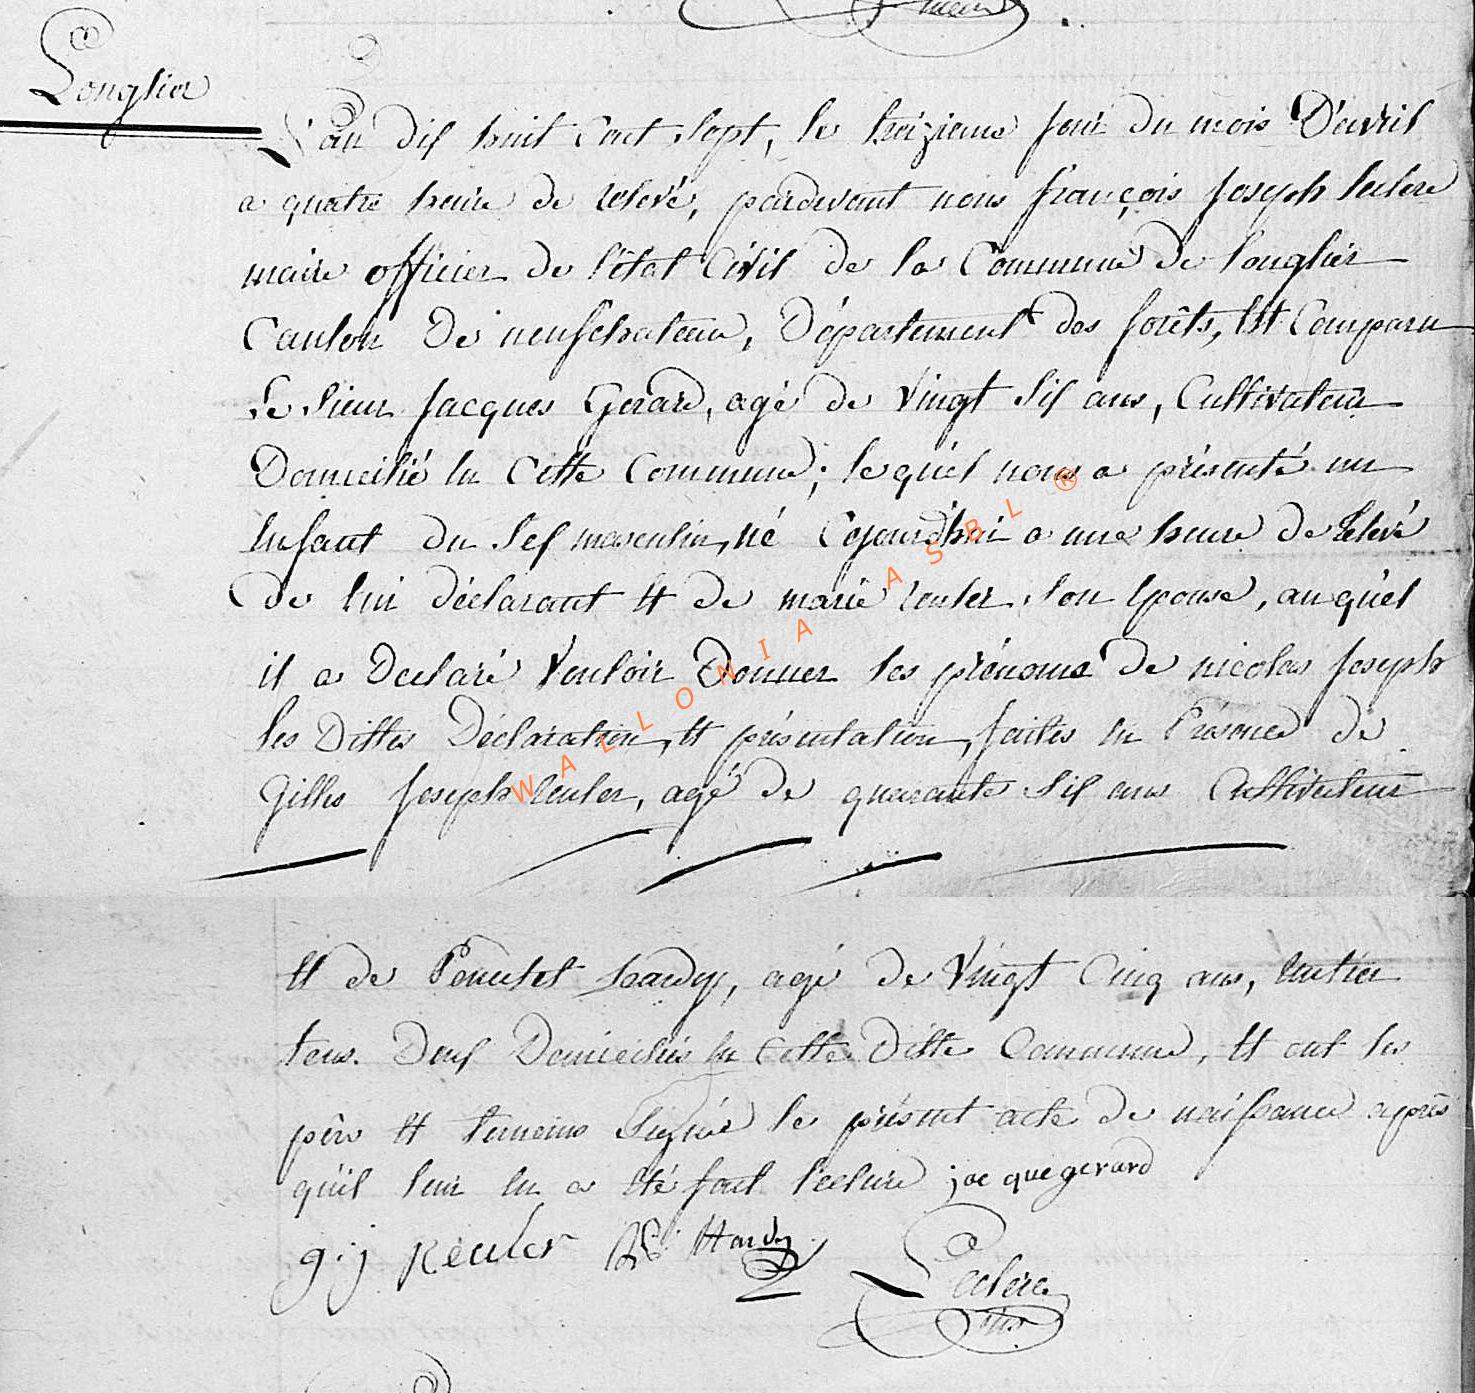 Longlier
L'an dix huit cent sept, le treizieme jour du mois D'avril
a quatre heure de relevé, pardevant nous françois Joseph leclere
maire officier de l'état Civil de la Commune de longlier
Canton De neufchateau, Département des forêts, est Comparu
Le sieur Jacques Gerard, agé de Vingt six ans, Cultivateur
Domicilié en Cette Commune; lequel nous a présenté un
Enfant du sex masculin, né Cejourd'hui a une heure de relevé
de lui déclarant et de marie reuler son epouse, auquel
il a Declaré Vouloir Donner les prénoms de nicolas Joseph
les Dittes Déclaration, et présentation, faites en Présence de
Gilles Joseph reuler, agé de quarante six ans Cultivateur
WALLONIA ASBL ®
et de hardy, agé de Vingt Cinq ans, rentier
tous Deux Domiciliés en Cette Ditte Commune, et ont les
père et temoins signés le présent acte de naissance après
qu'il leur en a été fait lecture jacque gerard
g. j Reuler Hardy Leclere